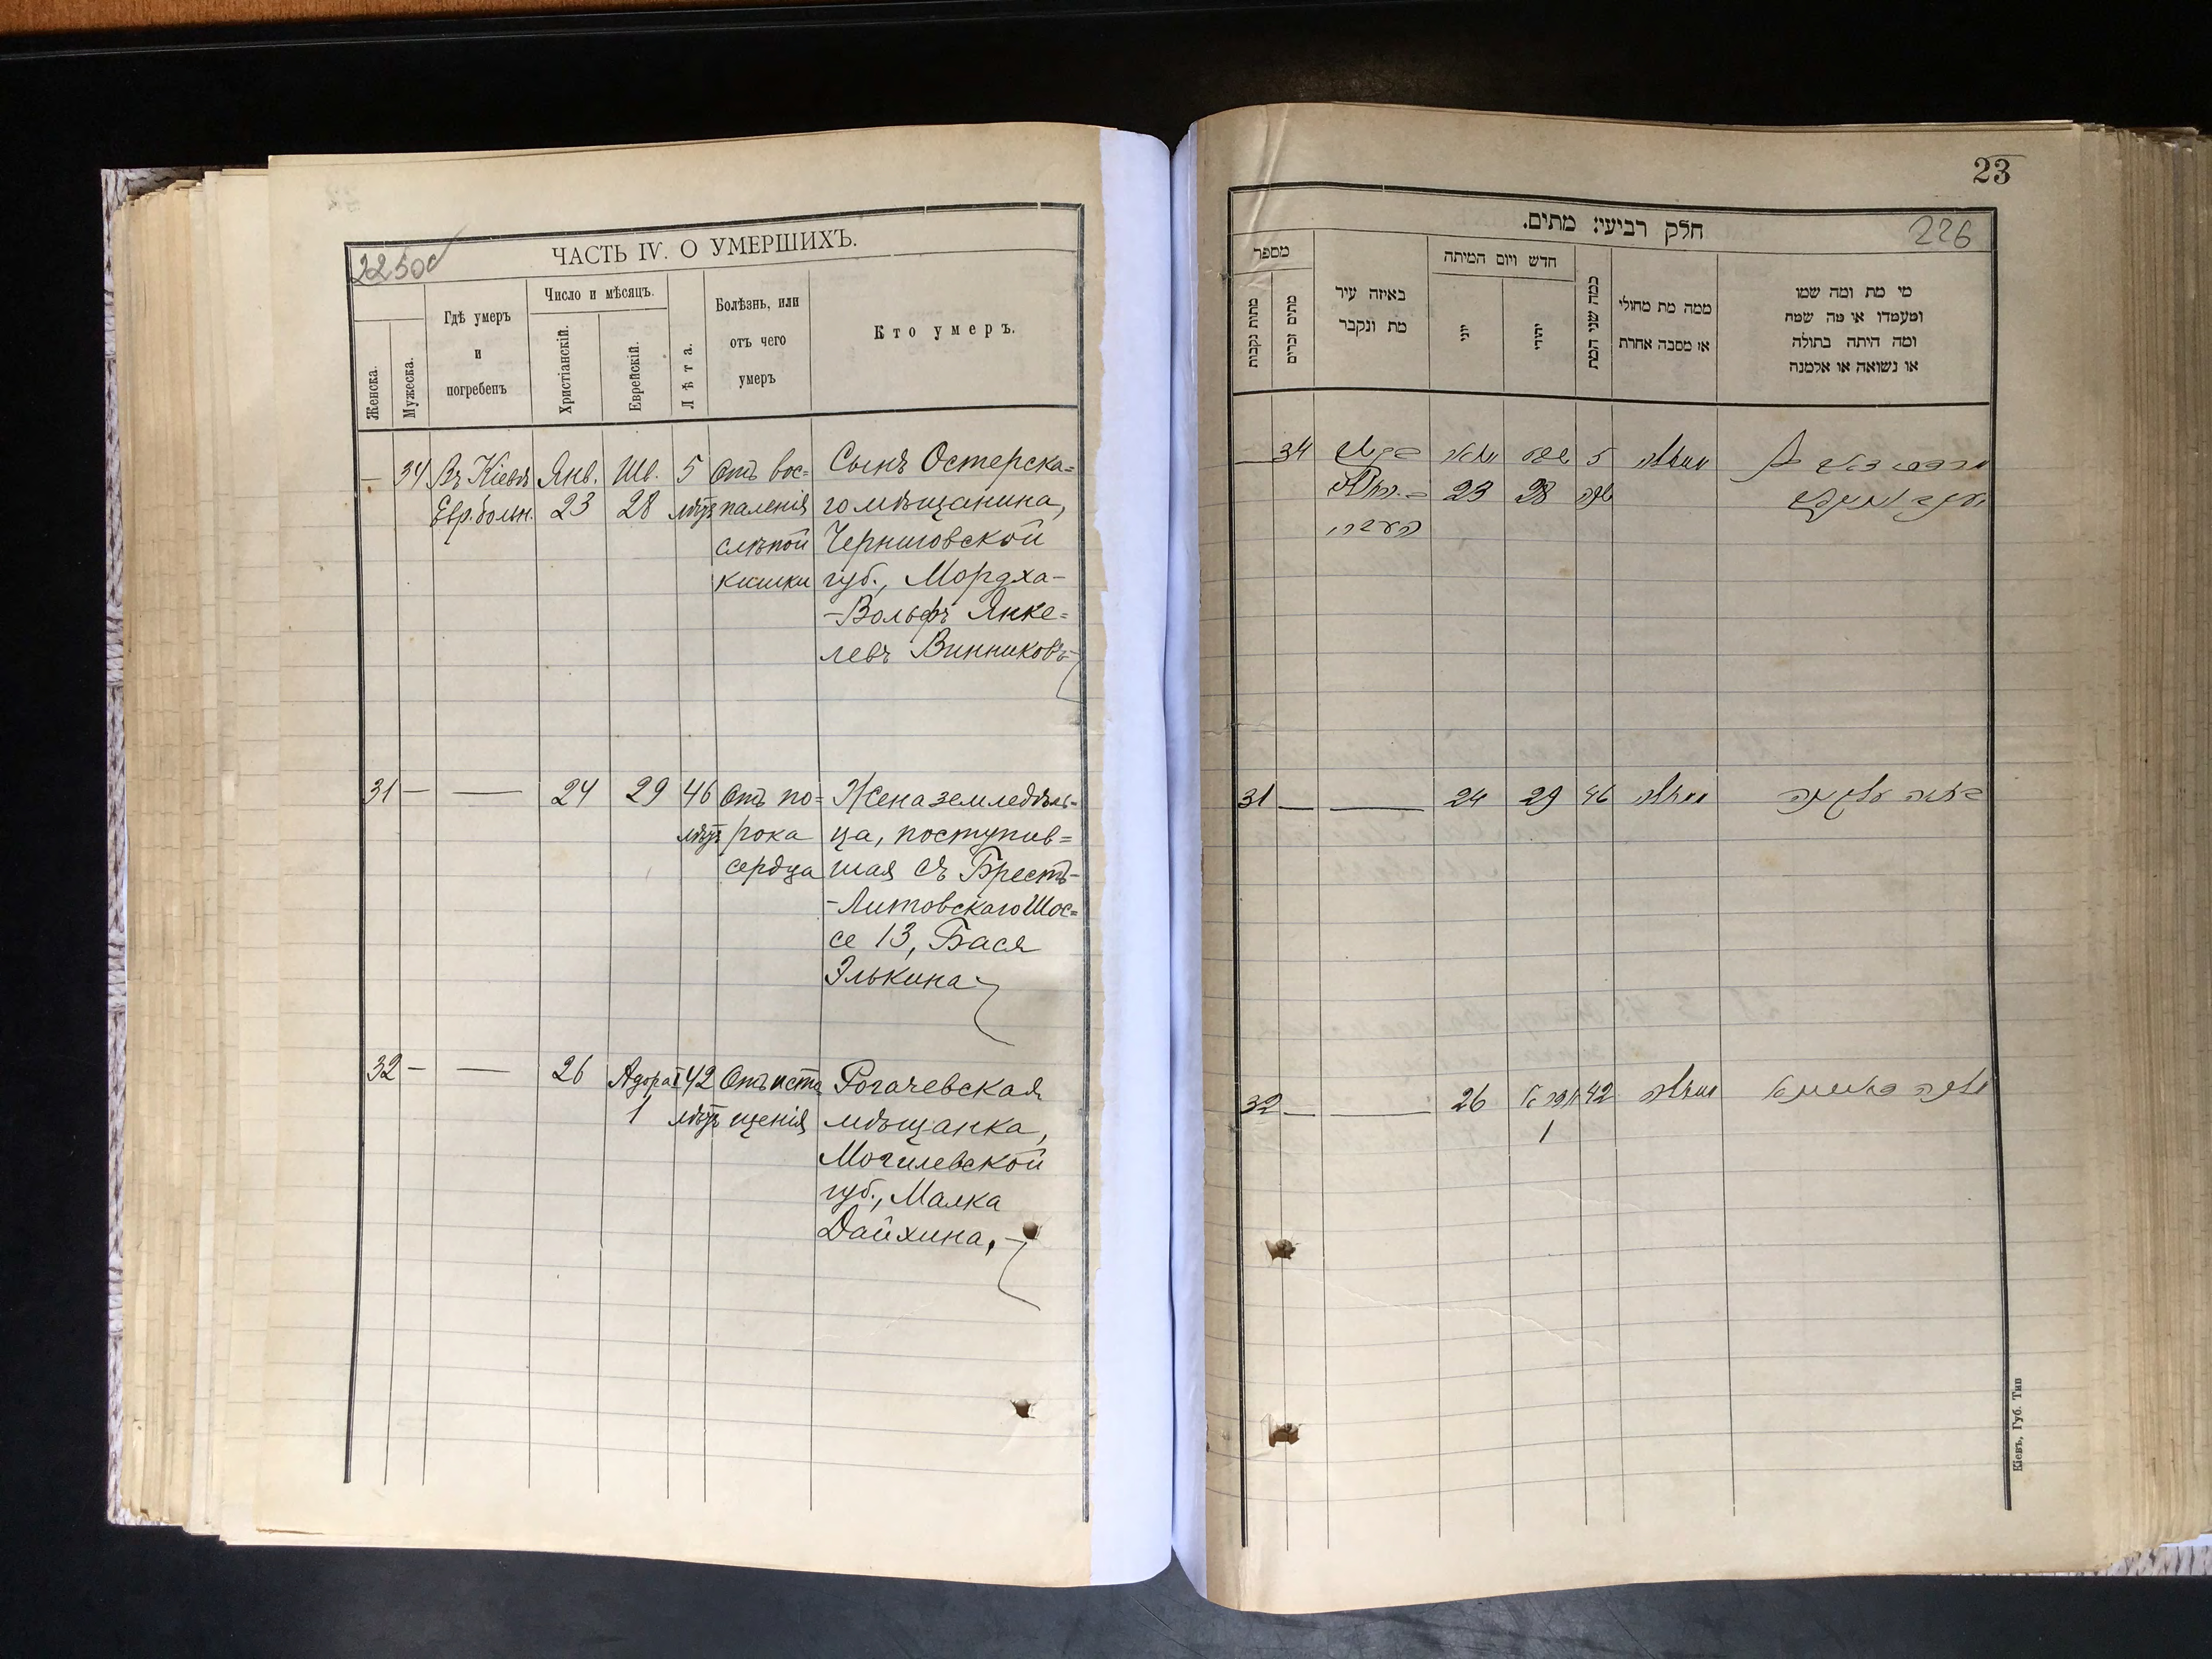 225об
ЧАСТЬ IV. О УМЕРШИХЪ.
Женска.
Мужеска.
Гдѣ умеръ
и
погребенъ
Число и мѣсяцъ.
Христіанскій.
Еврейскій.
Лѣта.
Болѣзнь, или
отъ чего
умеръ
Кто умеръ.
— 34 Въ Кіевѣ Янв. Шв. 5 Отъ вос= Сынъ Остерска=
Евр. больн. 23 28 лѣтъ паленія го мѣщанина,
слѣпой Черниговской
кишки губ., Мордха-
-Вольфъ Янке=
левъ Винниковъ
31 — — 24 29 46 Отъ по= Жена земледѣль-
лѣтъ рока ца, поступив=
сердца шая съ Брестъ-
-Литовскаго Шос=
се 13, Бася
Элькина
32 — — 26 Адора I 42 Отъ исто Рогачевская
1 лѣтъ щенія мѣщанка,
Могилевской
губ., Малка
Дайхина.
23
226
חלק רביעי: מתים.
מספר
מתות נקבות
מתים זכרים
באיזה עיר
מת ונקבר
חדש ויום המיתה
יוני
יהודי
כמה שני המת
ממה מת מחולי
או מסבה אחרת
מי מת ומה שמו
ומעמדו או מה שמה
ומה היתה בתולה
או נשואה או אלמנה
— 34 5
23 28
31 — — 24 29 46
32 — — 26 42
1
Кіевъ, Губ. Тип